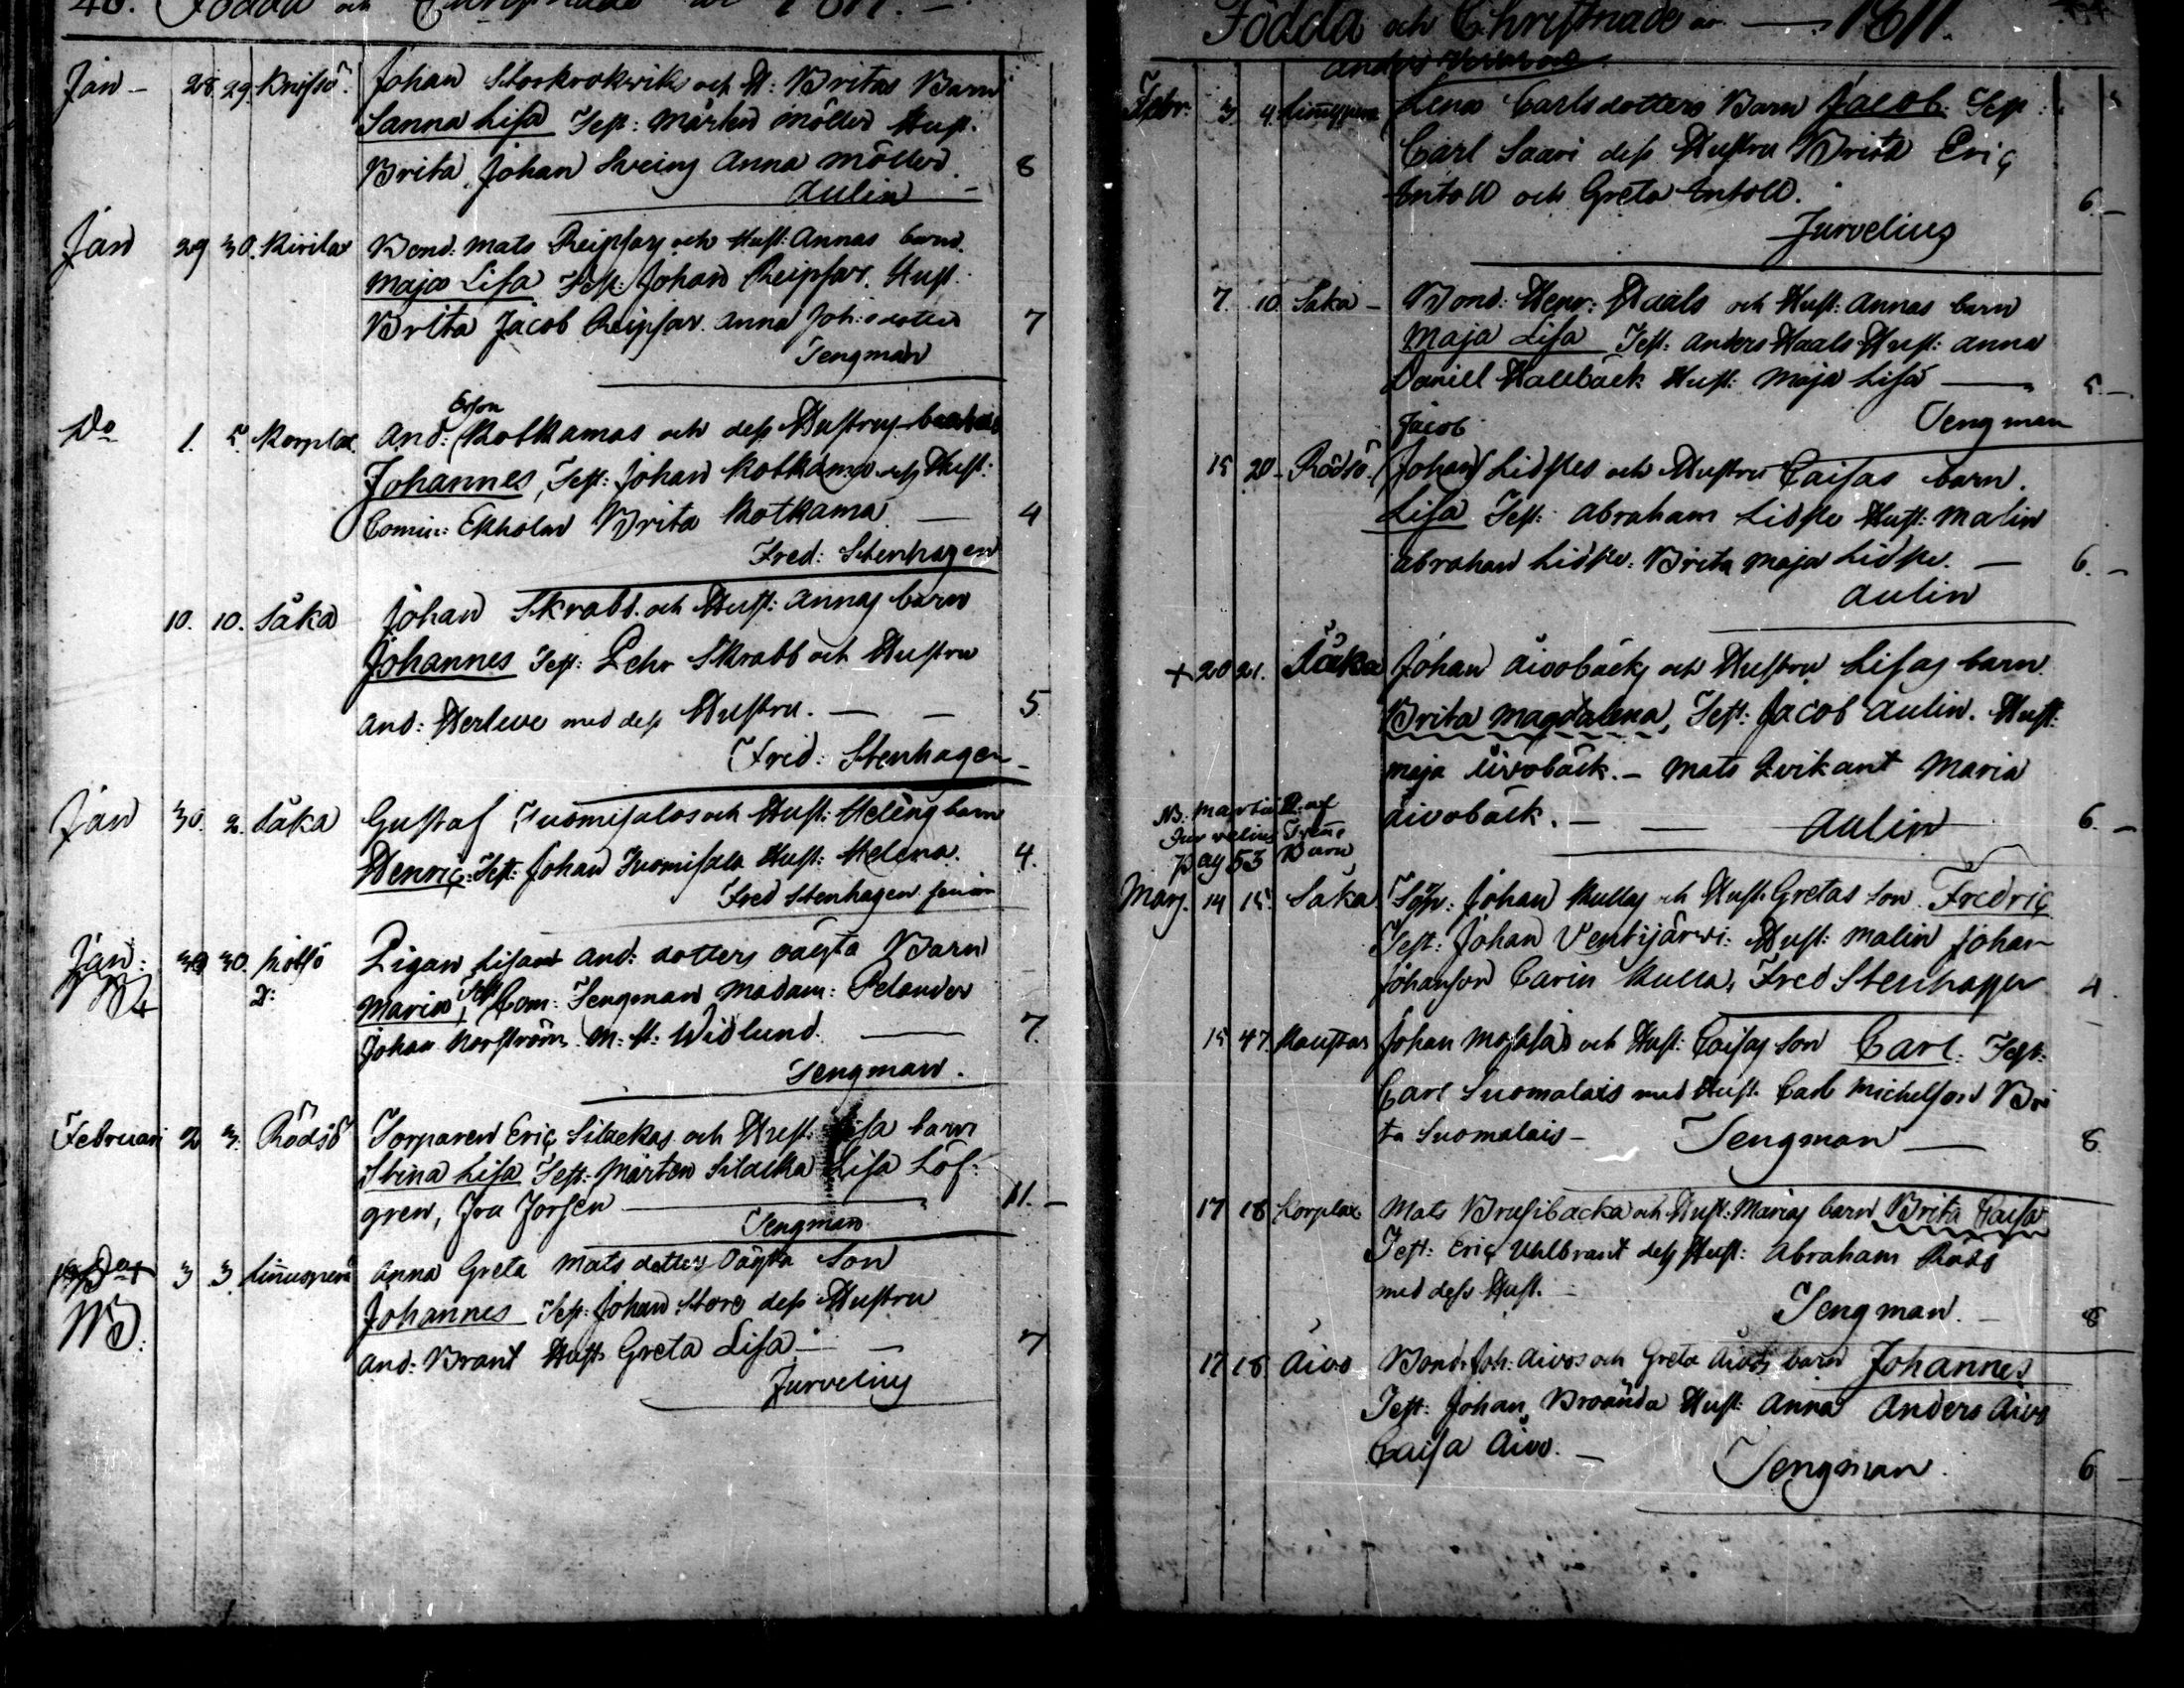 40. Födda och Christnade år 1811. —
Jan — 28 29. Knifsö. Johan Storkrokwiks och H: Britas Barn
Sanna Lisa Test: Mårten Möller Hust.
Brita, Johan Sveins Anna Möller. 8
Aulin —
Jan 29 30. Kirilax Bond: Mats Reipsars och Hust: Annas barn.
Maja Lisa Test: Johan Reipsar. Hust.
Brita Jacob Reipsar. Anna Joh:sdotter 7
Tengman
Erson
Do 1. 5. Korplax. And: Kotkamas och dess Hustrus barn
Johannes, Test: Johan Kotkama dess Hust:
Comin: Ekholm Brita Kotkama — 4
Fred: Stenhagen
10. 10. Såka Johan Skrabb. och Hust: Annas barn
Johannes Test: Pehr Skrabb och Hustru
And: Herleve med dess Hustru. — — 5.
Frid: Stenhagen —
Jan 30. 2. Såka Gustaf Tuomisalos och Hust: Helenas barn
Henric: Test: Johan Tuomisalo Hust: Helena. 4.
Fred Stenhagen junior
Jan: 30. Pigan Lisa And: dotters oägta Barn
Maria, Test Com: Tengman Madam: Relander
Johan Norström. M: st: Widlund. — 7.
Tengman.
Februari 2 3. Rödsö Torparen Eric Silackas och Hust: Lisa barn
Stina Lisa Test: Mårten Silacka Lisa Löf:
gren, Jfru Jorsen — 11. —
Tengman
3 3. Anna Greta Mats dotters Oägta Son
Johannes Test: Johan Store dess Hustru
And: Brant Hust: Greta Lisa — — 7
NB: Jurvelius
Födda och Christnade år — 1811.
Febr: 3 4. Lena Carlsdotters Barn Jacob. Test:
Carl Saari dess Hustru Brita Eric
Antoll och Greta Antoll. 6. —
Jurvelius
7. 10. Såka — Bond: Henr: Haals och Hust: Annas barn
Maja Lisa Test: Anders Haals Hust: Anna
Daniel Hallbäck Hust: Maja Lisa — 5 —
Tengman
Jacob
15 20 — Rödsö. Johan Lidstes och Hustru Caisas barn.
Lisa Test: Abraham Lidste Hust: Malin
Abraham Lidste. Brita Maja Lidste. — 6. —
Aulin
+ 20 21. Såka Johan Åivobäcks och Hustru Lisas barn.
Brita Magdalena, Test: Jacob Aulin. Hust:
Maja Åivobäck. — Mats Qvikant Maria
Åivobäck. — — Aulin 6. —
NB: Martii D: af
Jurvelius Trenne
pag 53 Barn
Mars. 14 15. Såka. Johan Kullas och Hust: Gretas Son Fredric
Test: Johan Ventijärwi. Hust: Malin Johan
Johanson Carin Kulla, Fred Stenhagen 4.
15 47. Kaustar Johan Mosalas och Hust: Caisas Son Carl: Test:
Carl Suomalais med Hust. Carl Michelson Bri
ta Suomalais — Tengman — 8.
17 18 Korplax Mats Brusibacka och Hust: Marias barn Brita Caisa
Test: Eric Uhlbrant dess Hust: Abraham Rads
med dess Hust. —
Tengman. — 8
17 18. Åivo Bond: Joh: Åivos och Greta Åivos barn Johannes
Test: Johan Broända Hust: Anna Anders Åivo
Caisa Åivo. —
Tengman. 6 —